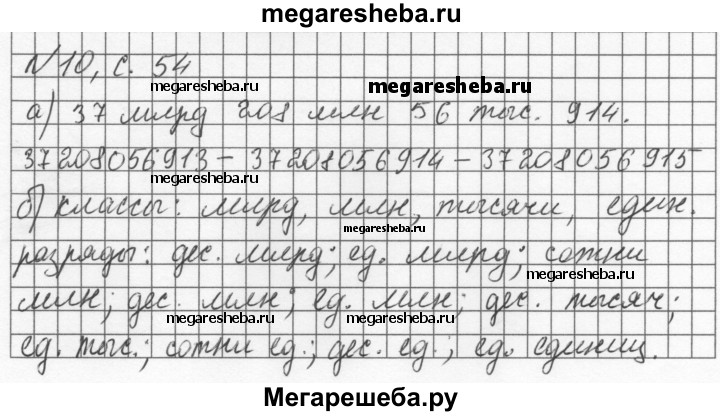 megaresheba.ru
№10, с. 54
megaresheba.ru
megaresheba.ru
а) 37 млрд 208 млн 56 тыс. 914.
37208056913 – 37208056914 – 37208056915
megaresheba.ru
б) классы: млрд, млн, тысячи, един.
megaresheba.ru
разряды: дес. млрд; ед. млрд; сотни
megaresheba.ru
млн; дес. млн; ед. млн; дес. тысяч;
megaresheba.ru
megaresheba.ru
ед. тыс.; сотни ед.; дес. ед.; ед. единиц.
Мегарешеба.ру